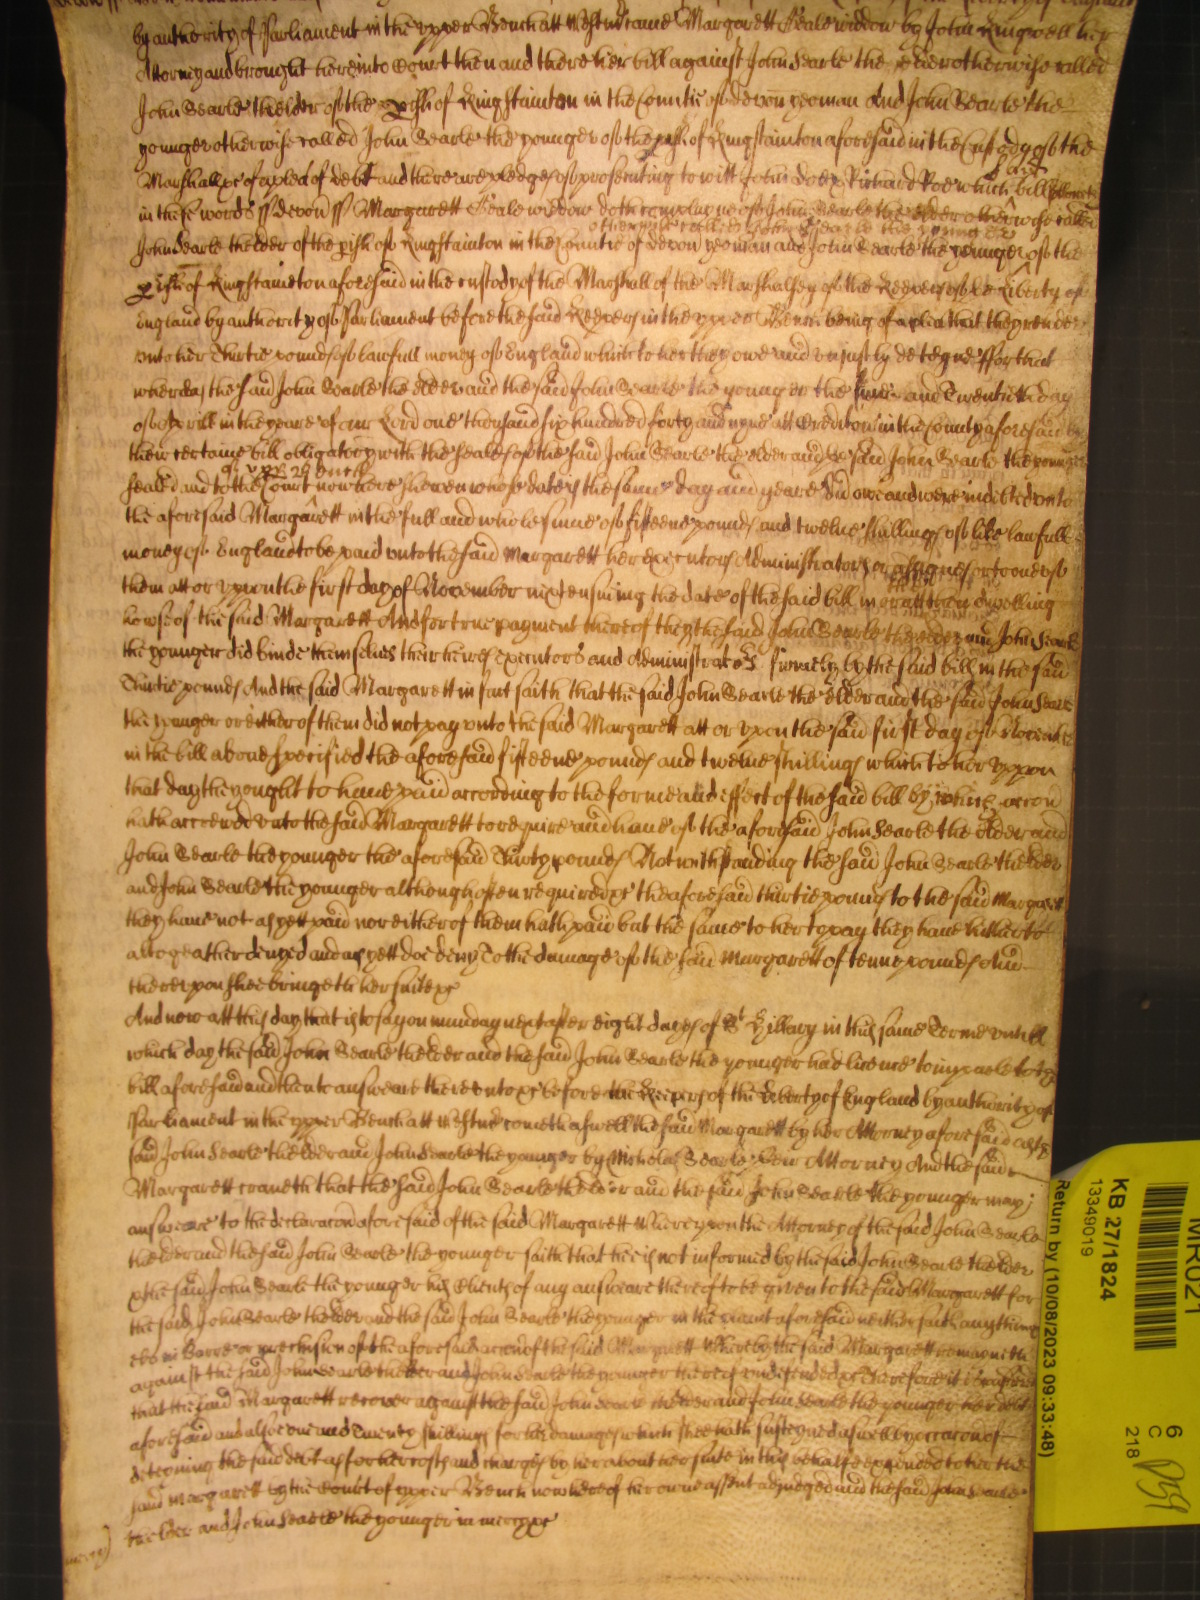 by authority of Parliament in the upper Bench att Westm came Margarett Beale widdow by John Ringwell her
Attorney and brought here into Court then and there her bill against John Searle the elder otherwise called
John Searle thelder of the pish of Kingstainton in the Countie of Devon yeoman And John Searle the
younger otherwise called John Searle the younger of the pish of Kingstainton aforesaid in the Custody of the
Marshall &c of a plea of debt and there are pledges of prosecuting to witt John Doe & Richard Roe which bill
in these words ss Devon ss Margarett Beale widdow doth complayne of John Searle the elder otherwise called
otherwise called John Searle the younger
John Searle thelder of the pish of Kingstainton in the Countie of Devon yeoman and John Searle the younger of the
pish of Kingstainton aforesaid in the custody of the Marshall of the Marshalsey of the Keepers of the Liberty of
England by authority of Parliament before the said Keepers in the upper Bench being of a plea that they render
unto her Thirtie pounds of lawfull money of England which to her they owe and unjustly deteyne ffor that
whereas the said John Searle the elder and the said John Searle the younger the and Twentieth day
of Aprill in the yeare of our Lord one thousand six hundred forty and nyne att Crediton in the County aforesaid by
their certaine bill obligatory with the seales of the said John Searle the elder and the said John Searle the younger
sealed and to the Court now here shewen whose date is the same day and yeare did owe and were indebted unto
the aforesaid Margarett in the full and whole summe of fifteene pounds and twelve shillings of like lawfull
money of England to be paid unto the said Margarett her executors Administrators or assignes or to one of
them att or upon the first day of November next ensuing the date of the said bill in dwelling
howse of the said Margarett And for true payment thereof they the said John Searle the elder and John Searle
the younger did binde themselves their heires executors and Administrators firmely by the said bill in the said
Thirtie pounds And the said Margarett in fact saith that the said John Searle the elder and the said John Searle
the younger or either of them did not pay unto the said Margarett att or upon the said first day of November
in the bill above specified the aforesaid fifteene pounds and twelve shillings which to her uppon
that day they ought to have paid according to the forme and effect of the said bill by which accon
hath accrewed unto the said Margarett to require and have of the aforesaid John Searle the elder and
John Searle the younger the aforesaid Thirty pounds Notwithstanding the said John Searle thelder
and John Searle the younger although often required &c the aforesaid thirtie pounds to the said Margarett
they have not as yett paid nor either of them hath paid but the same to her to pay they have hitherto
altogeather denyed and as yett doe deny To the damage of the said Margarett of tenne pounds And
thereupon shee bringeth her suite &c
And now att this day that is to say on munday next after eight dayes of St Hillary in this same Terme untill
which day the said John Searle thelder and the said John Searle the younger had licence to imparle to the
bill aforesaid and then to answeare thereunto &c before the Keepers of the Liberty of England by authority of
Parliament in the upper Bench att Westm cometh aswell the said Margarett by her Attorney aforesaid as the
said John Searle thelder and John Searle the younger by Nicholas Searle their Attorney And the said
Margarett craveth that the said John Searle thelder and the said John Searle the younger may
answeare to the declaracon aforesaid of the said Margarett Whereupon the Attorney of the said John Searle
thelder and the said John Searle the younger saith that hee is not informed by the said John Searle thelder
& the said John Searle the younger his Clients of any answeare thereof to be given to the said Margarett for
the said John Searle thelder and the said John Searle the younger in the aforesaid neither saith anything
els in Barre or preclusion of the aforesaid accon of the said Margarett Whereby the said Margarett remayneth
against the said John Searle thelder and John Searle the younger thereof undefended &c Therefore it is considered
that the said Margarett recover against the said John Searle thelder and John Searle the younger her debt
aforesaid and alsoe one and Twenty shillings for her damages which shee hath susteyned aswell by occacon of
deteyning the said debt as for her costs and charges by her about her suite in this behalfe expended to her the
said Margarett by the Court of upper Bench now here of her owne assent adjudged and the said John Searle
thelder and John Searle the younger in mercy &c
mercy
MR021
KB 27/1824
13349019
Return by (10/08/2023 09:33:48)
6
C
218